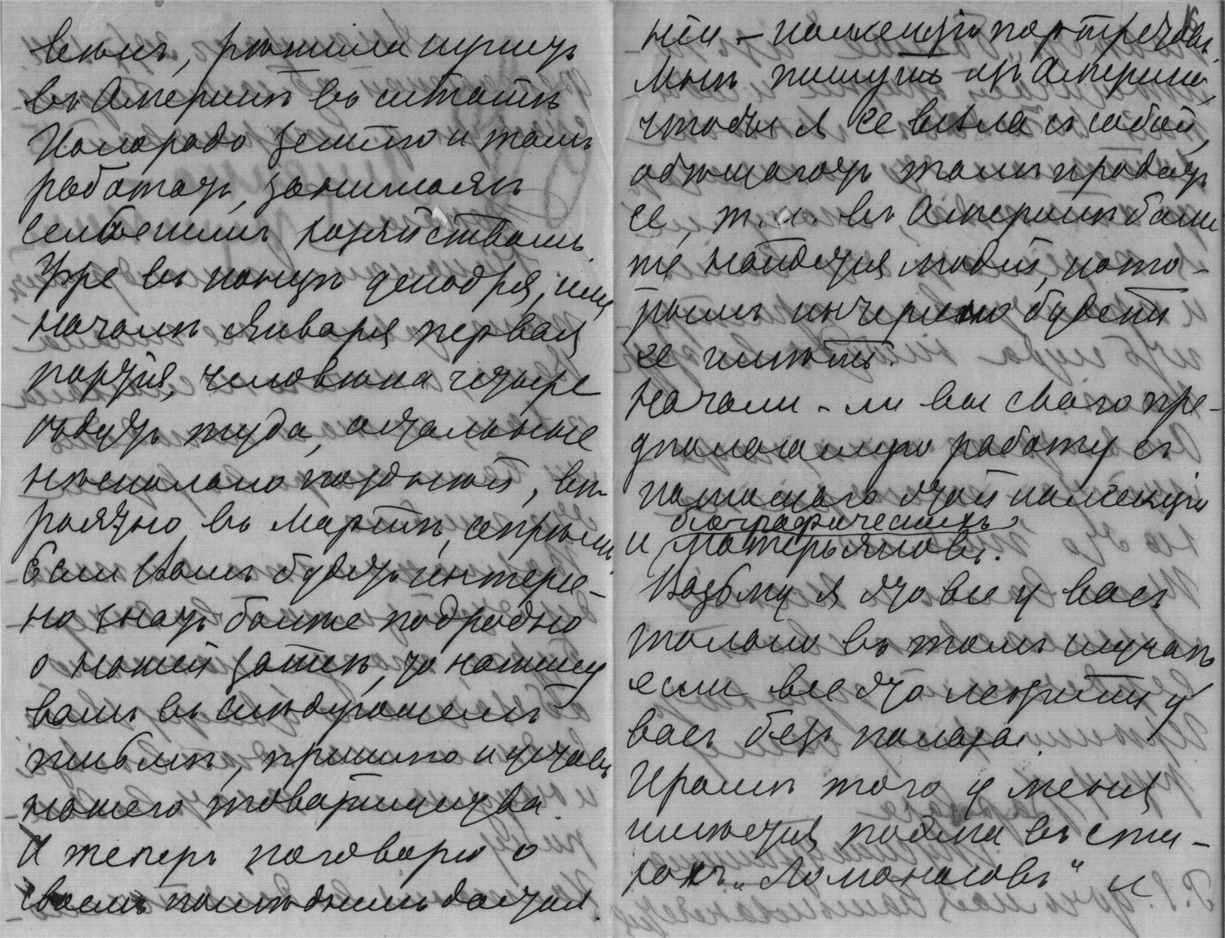 веки, рѣшили купить
въ Америкѣ въ штатѣ
Колорадо землю и тамъ
работать, занимаясь
сельскимъ хозяйствомъ.
Уже въ концѣ декабря, или
началѣ января первая
партія, человѣка четыре
ѣдутъ туда, остальные
нѣсколько позднѣй, вѣ-
роятно въ Мартѣ, Апрѣлѣ.
Если Вамъ будетъ интерес-
но знать болѣе подробно
о нашей затеѣ, то напишу
вамъ въ слѣдующемъ
письмѣ, пришлю и уставъ
нашего товарищества.
А теперь поговорю о
своемъ послѣднемъ
ніи – коллекціи портретовъ.
Мнѣ пишутъ изъ Америки,
чтобы я ее везла съ собой,
обѣщаютъ тамъ продать
ее, т. к. въ Америкѣ боль
же найдется людей, кото-
рымъ интересно будетъ
ее имѣть.
Начали-ли вы свою пре-
дполагаемую работу съ
помощью этой коллекціи
и біографическихъ
матерьяловъ.
Возьму я это все у васъ
только въ томъ случаѣ
если все это лежитъ у
васъ безъ пользы.
Кромѣ того у меня
имѣется поэма въ сти-
хахъ „Ломоносовъ" и